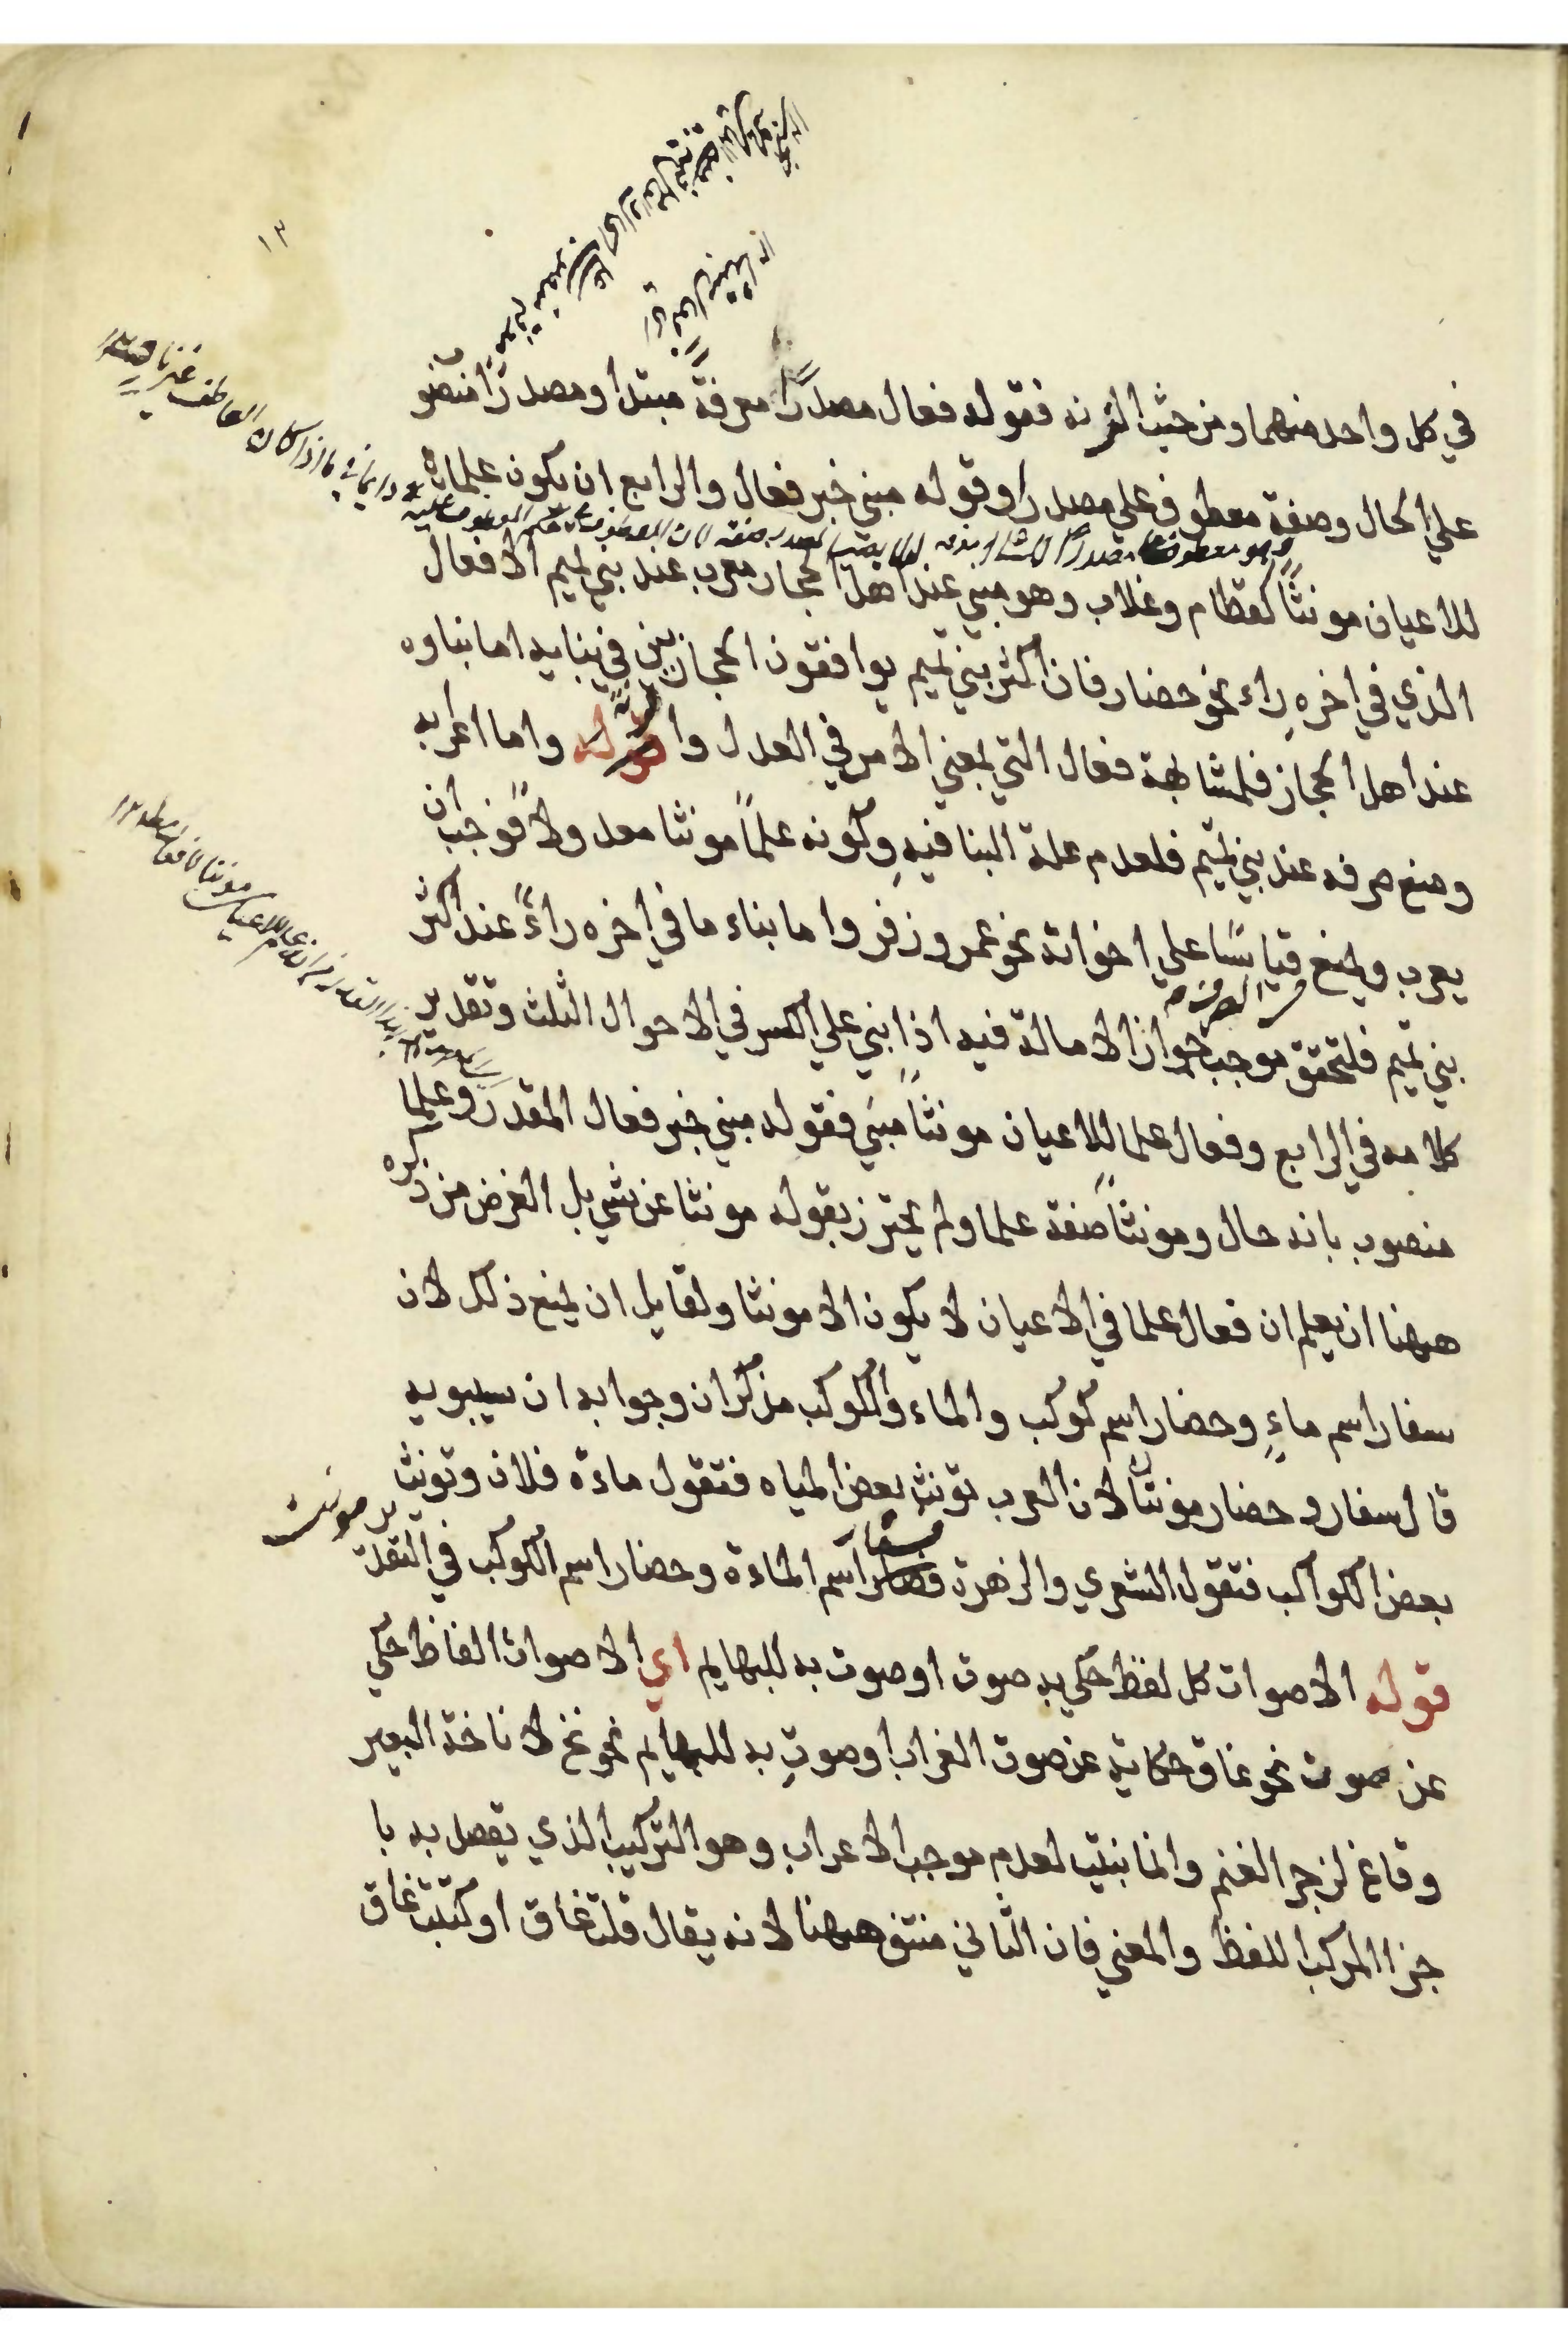 ١٣
في كل واحد منهما ومن حيث الزنه فقوله فعال مصدرًا معرفةً مبتدا ومصدرًا منصو
علي الحال وصفة معطوف علي مصدرا وقوله مبني خبر فعال والرابع ان يكون علما
للاعيان مونثًا كقطام وغلاب وهو مبني عند اهل الحجاز معرب عند بني تميم الا فعال
الذي في اخره راء نحو حضار فان اكثر بني تميم يوافقون الحجازيين في بنايه اما بناوه
عند اهل الحجاز فلمشابهة فعال التي بمعني الامر في العدل وا واما اعرابه
ومنع صرفه عند بني تميم فلعدم علة البنا فيه وكونه علمًا مونثا معدولا فوجب ان
يعرب ويمنع قياسًا علي اخواته نحو عمر وزفر واما بناء ما في اخره راءً عند اكثر
بني تميم فلتحقق موجب جواز الامالة فيه اذا بني علي الكسر في الاحوال الثلث وتقدير
كلامه في الرابع وفعال علما للاعيان مونثًا مبني فقوله مبني خبر فعال المقدر وعلما
منصوب بانه حال ومونثًا صفة علما ولم يحترز بقوله مونثا عن شي بل الغرض من ذكره
ههنا ان يعلم ان فعال علما في الاعيان لا يكون الا مونثا ولقايل ان يمنع ذلك لان
سفار اسم ماءٍ وحضار اسم كوكب والماء والكوكب مذكران وجوابه ان سيبويه
قال سفار وحضار مونثًا لان العرب تونث بعض المياه فتقول ماءة فلان وتونث
بعض الكواكب فتقول الشعري والزهرة فسفار اسم الماءة وحضار اسم الكوكب في التقدير مونث
قوله الاصوات كل لفظ حكي به صوت او صوت به للبهايم اي الاصوات الفاظ حكي
عن صوت نحو غاق حكاية عن صوت الغراب او صوت به للبهايم نحو نخ لاناخة البعير
وقاع لزجر الغنم وانما بنيت لعدم موجب الاعراب وهو التركيب الذي يقصل به با
جزا المركب اللفظ والمعني فان الثاني منتف ههنا لانه يقال قلت غاق او كتبت غاق